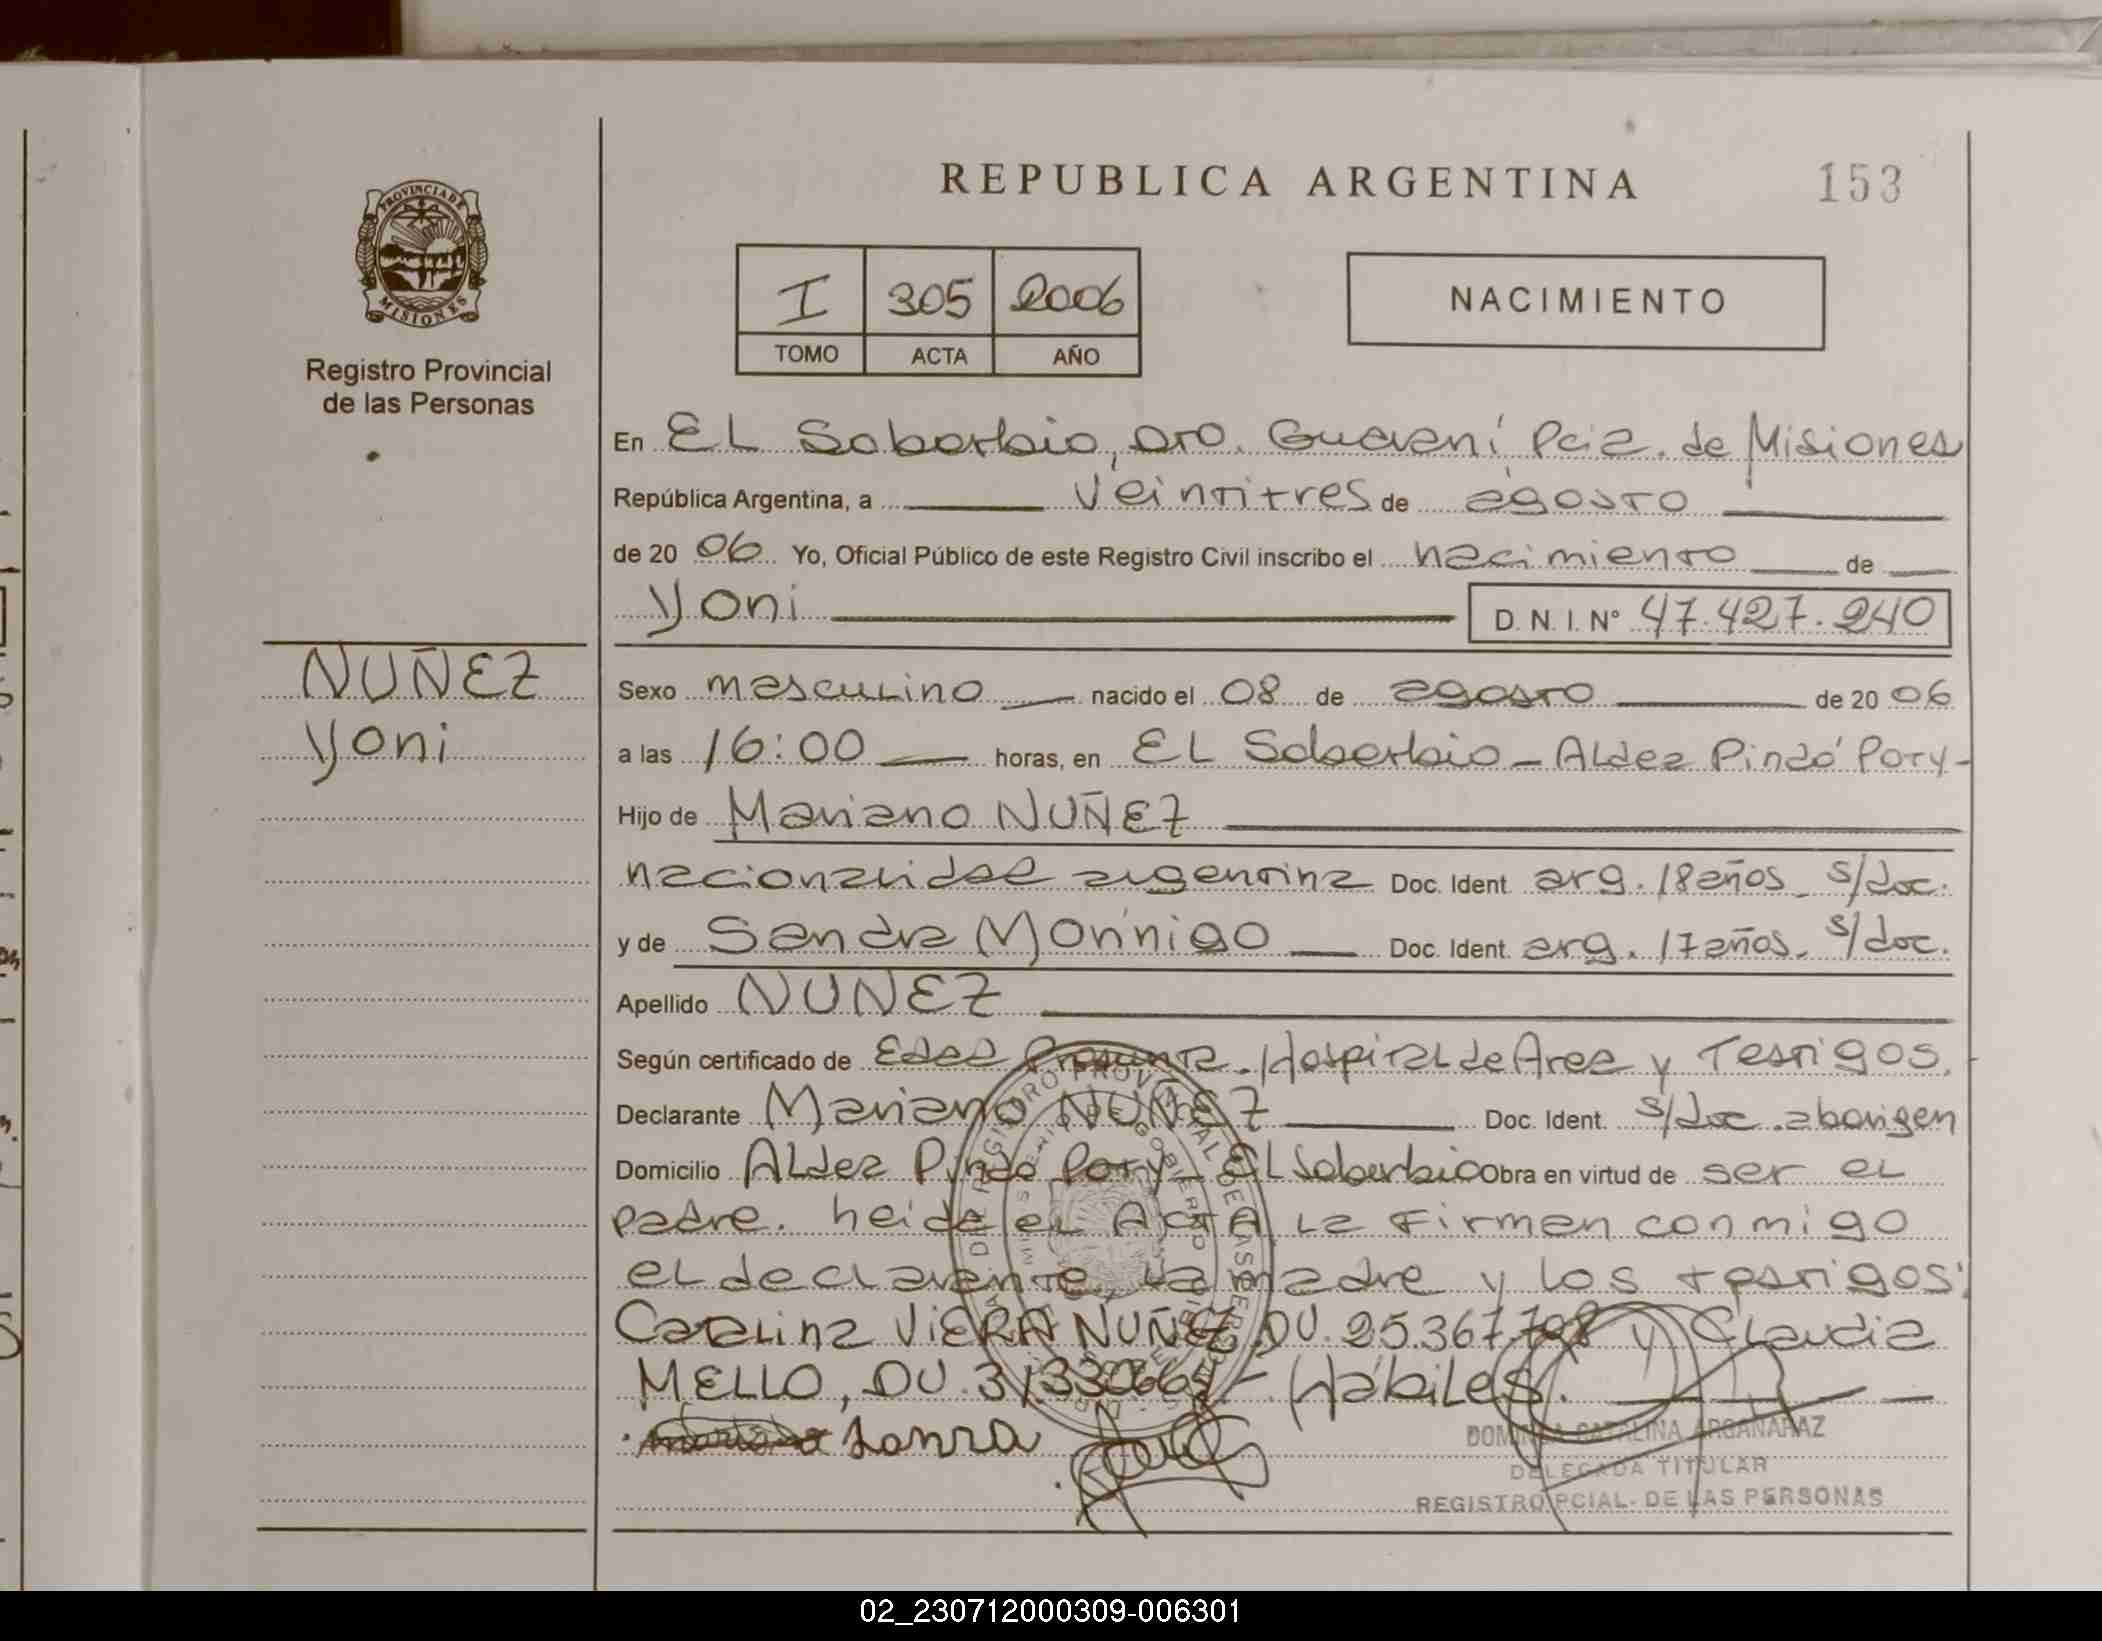 REPUBLICA ARGENTINA
153
PROVINCIA DE
MISIONES
Registro Provincial
de las Personas
I 305 2006
TOMO ACTA AÑO
NACIMIENTO
En EL Soberbio, Dto. Guaraní Pcia. de Misiones
República Argentina, a veintitres de agosto
de 20 06 Yo, Oficial Público de este Registro Civil inscribo el nacimiento de
Yoni D. N. I. Nº 47.427.240
NUÑEZ
Yoni
Sexo masculino nacido el 08 de agosto de 20 06
a las 16:00 horas, en EL Soberbio - Aldea Pindó Poty-
Hijo de Mariano NUÑEZ
nacionalidad argentina Doc. Ident arg. 18 años. s/doc.
y de Sandra Morínigo Doc. Ident. arg. 17 años. s/doc.
Apellido NUÑEZ
Según certificado de Edad Presunta. Hospital de Area y Testigos.
Declarante Mariano NUÑEZ Doc. Ident. s/doc. aborigen
Domicilio Aldea Pindó Poty - EL Soberbio Obra en virtud de ser el
padre. Leída el ACTA La Firman conmigo
el declarante La madre y los testigos:
Catalina VIERA NUÑEZ, DU. 25.367.798 y Claudia
MELLO, DU. Hábiles.
DOMINGA CATALINA ARGAÑARAZ
DELEGADA TITULAR
REGISTRO PCIAL. DE LAS PERSONAS
02_230712000309-006301